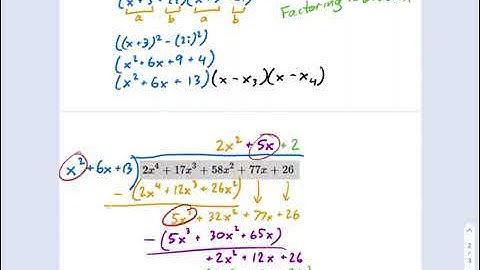 a b a b
Factoring
((x+3)² - (2i)²)
(x² + 6x + 9 + 4)
(x² + 6x + 13)(x - x₃)(x - x₄)
2x² + 5x + 2
x² + 6x + 13 2x⁴ + 17x³ + 58x² + 77x + 26
- (2x⁴ + 12x³ + 26x²)
5x³ + 32x² + 77x + 26
- (5x³ + 30x² + 65x)
+2x² + 12x + 26
2
/
3